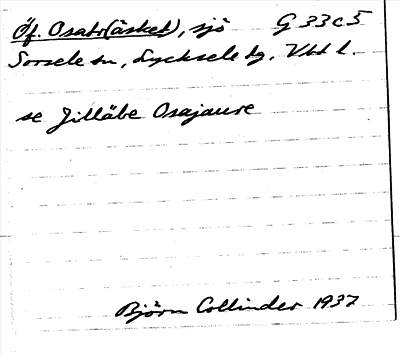 Öf. Osatr(äsket), sjö G 33 c 5
Sorsele sn, Lycksele tg, Vbt l.
se Jilläbe Osajaure
Björn Collinder 1937